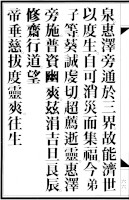 泉惠澤旁通於三界故能濟世
以度生自可消災而集福今弟
子等葵誠虔切超薦逝靈惠澤
旁施普資幽爽兹涓吉旦良辰
修齋行道望
帝垂慈拔度靈爽往生